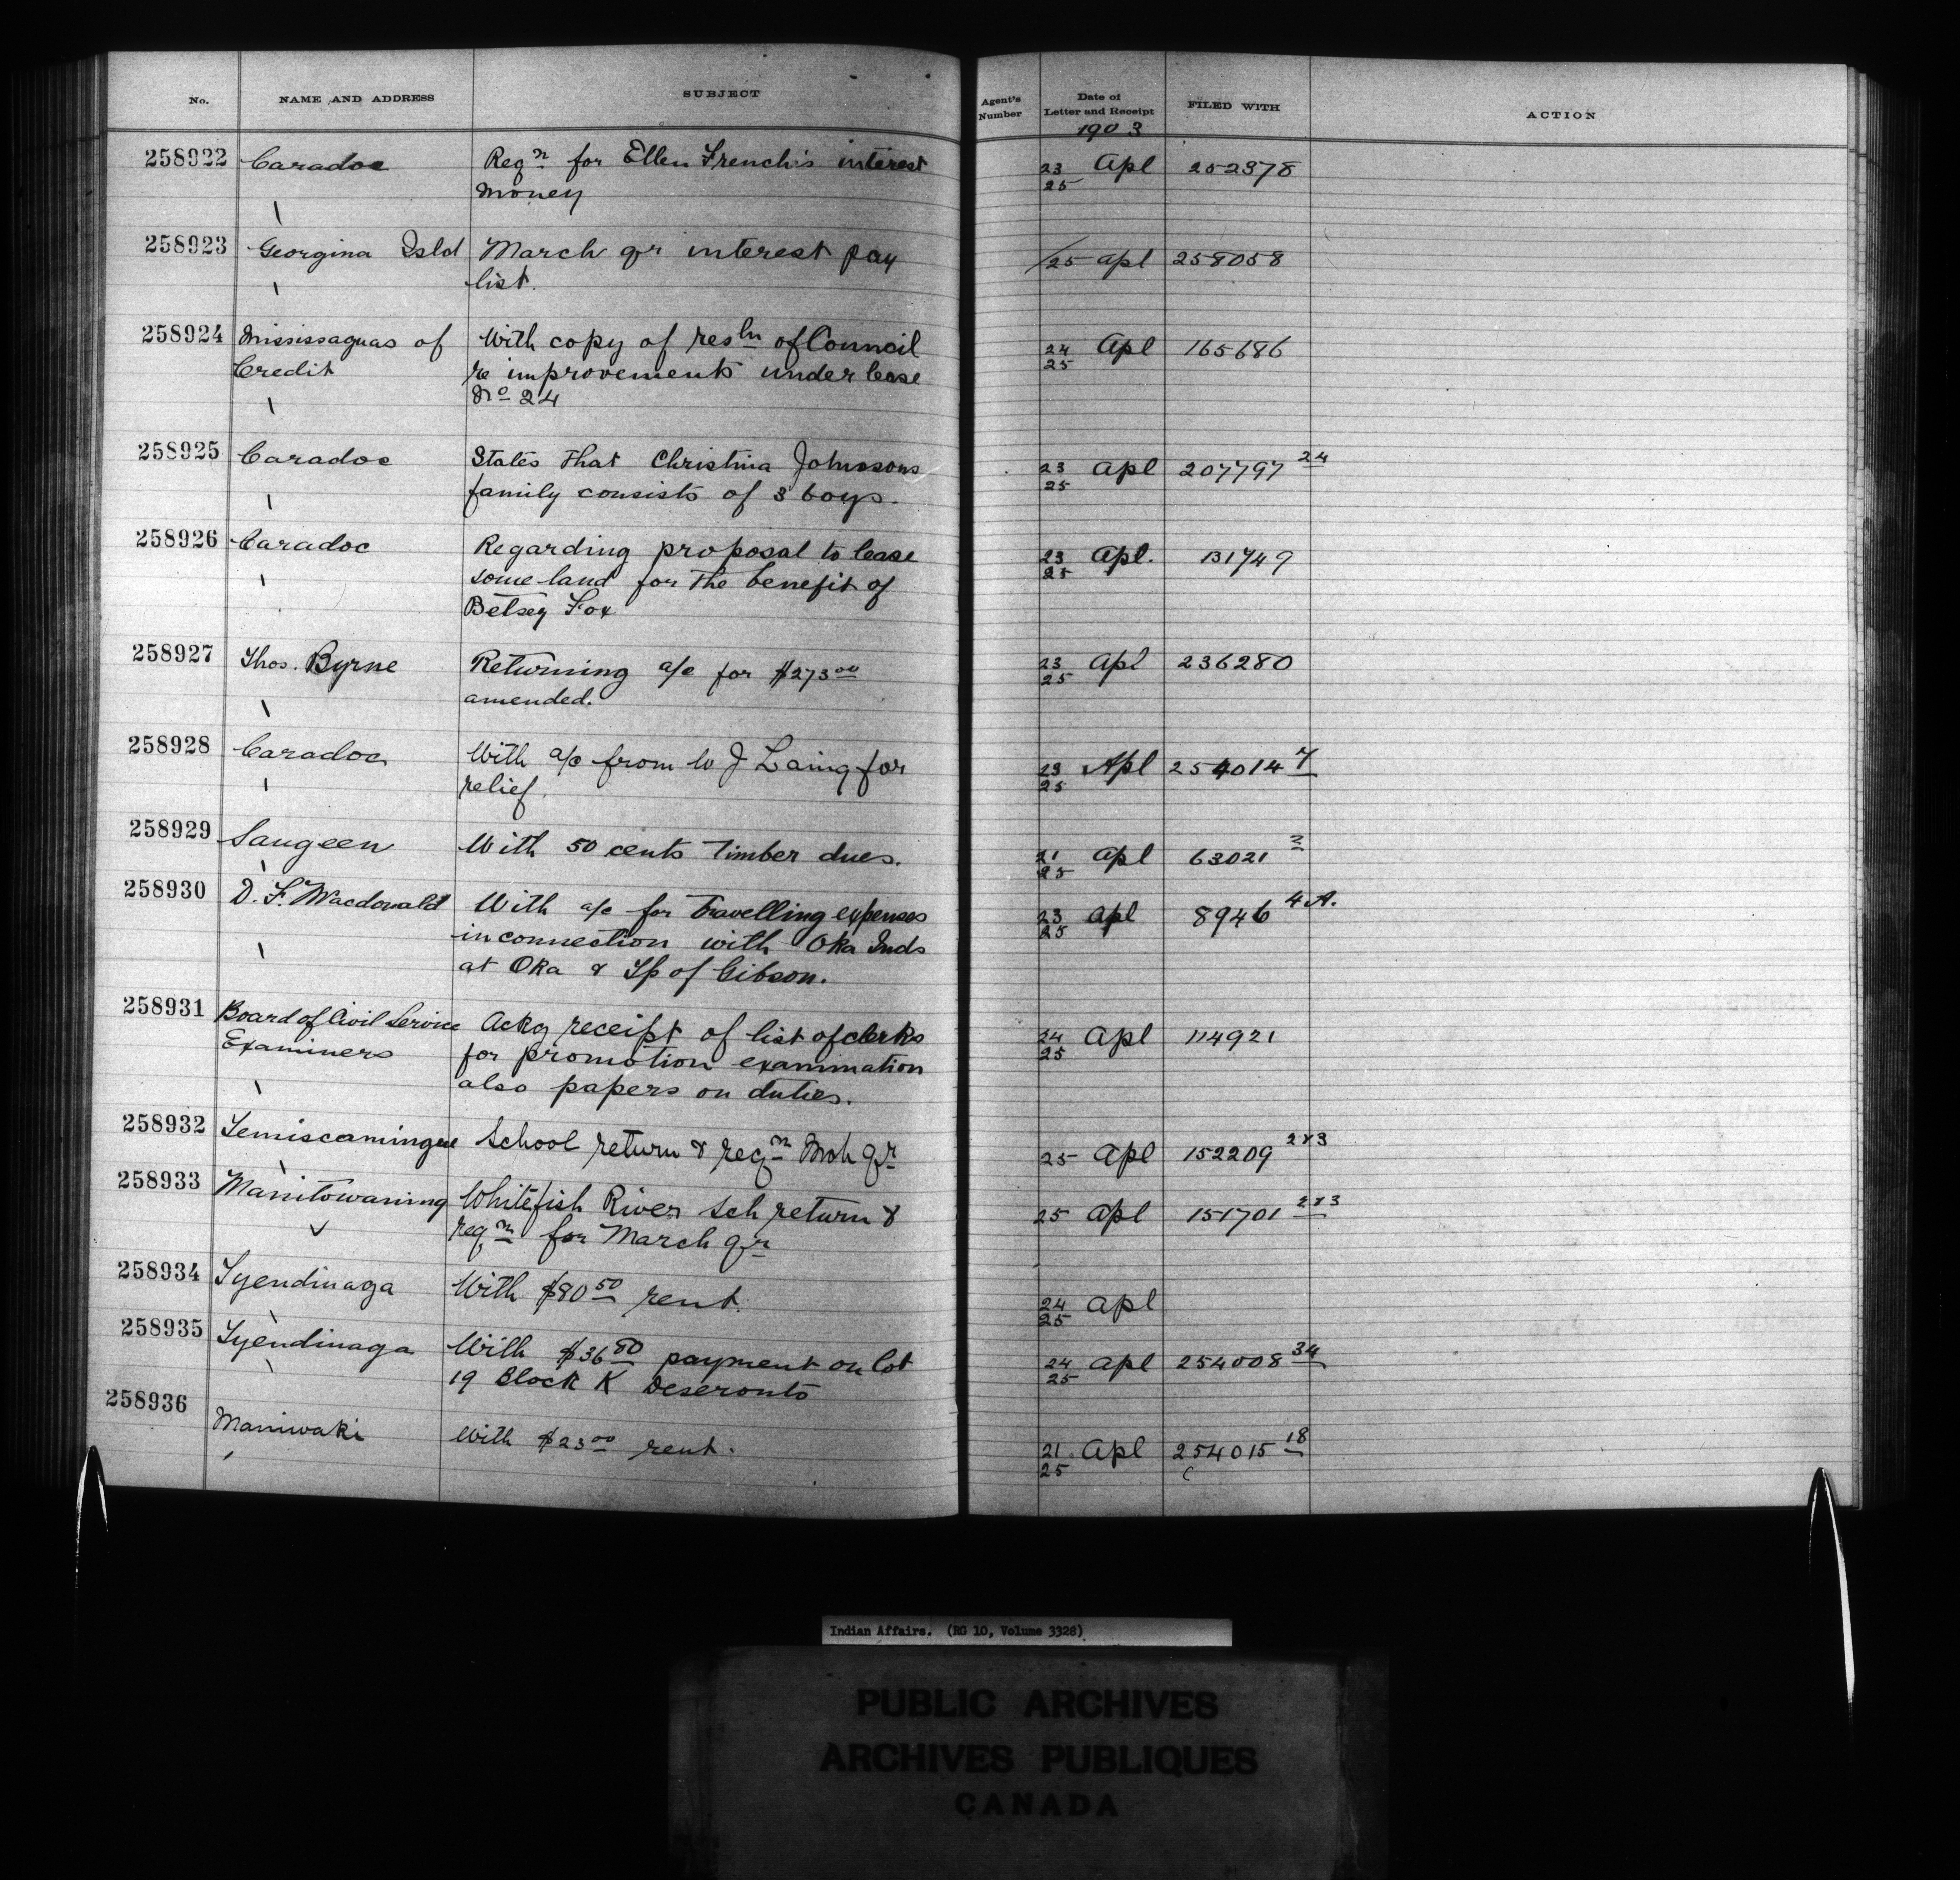 No. NAME AND ADDRESS SUBJECT Agent's Number Date of Letter and Receipt FILED WITH ACTION
1903
258922 Caradoc Reqn for Ellen French's interest 23/25 Apl 252378
money
258923 Georgina Isld March qr interest pay 25 apl 258058
list.
258924 Mississaguas of With copy of resln of Council 24/25 Apl 165686
Credit re improvements under lease
No 24
258925 Caradoc States that Christina Johnsons 23/25 apl 207797 24
family consists of 3 boys.
258926 Caradoc Regarding proposal to lease 23/25 Apl. 131749
some land for the benefit of
Betsey Fox
258927 Thos. Byrne Returning a/c for $273 00 23/25 Apl 236280
amended.
258928 Caradoc With a/c from W J Laing for 23/25 Apl 254014 7
relief.
258929 Saugeen With 50 cents Timber dues. 21/25 apl 63021 2
258930 D. F. Macdonald With a/c for Travelling expenses 23/25 apl 8946 4 A.
in connection with Oka Inds
at Oka & Tp of Gibson.
258931 Board of Civil Service Ackg receipt of list of clerks 24/25 apl 114921
Examiners for promotion examination
also papers on duties.
258932 Temiscamingue School return & reqn Mch Qr 25 apl 152209 2&3
258933 Manitowaning Whitefish River Sch return & 25 apl 151701 2&3
reqn for March qr
258934 Tyendinaga With $80 50 rent. 24/25 apl
258935 Tyendinaga With $36 80 payment on lot 24/25 apl 254008 34
19 Block K Deseronto
258936 Maniwaki With $23 00 rent. 21/25 apl 254015 18
c
Indian Affairs. (RG 10, Volume 3328)
PUBLIC ARCHIVES
ARCHIVES PUBLIQUES
CANADA